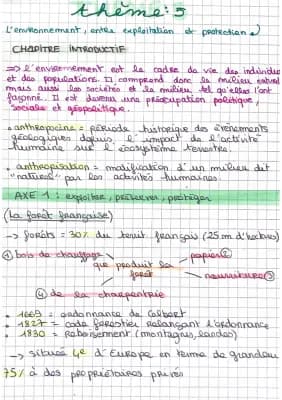 thème : 5
L'environnement, entre exploitation et protection
CHAPITRE INTRODUCTIF
=> L'environnement est le cadre de vie des individus
et des populations. Il comprend donc le milieu naturel
mais aussi les sociétés et le milieu tel qu'elles l'ont
façonné. Il est devenu une préoccupation politique,
sociale et géopolitique.
• anthropocène = période historique des évènements
géologiques depuis l'impact de l'activité
humaine sur l'écosystème terrestre.
• anthropisation = modification d'un milieu dit
"naturel" par les activités humaines.
AXE 1 : exploiter, préserver, protéger
(La forêt française)
-> forêts = 30% du territ français (25 m d'hectares)
① bois de chauffage
papier ②
que produit la
forêt
nourriture ③
④ de la charpentrie
• 1669 = ordonnance de Colbert
• 1827 = code forestier relançant l'ordonnance
• 1830 = reboisement (montagnes, landes)
-> située 4e d'Europe en terme de grandeur
75% à des propriétaires privés